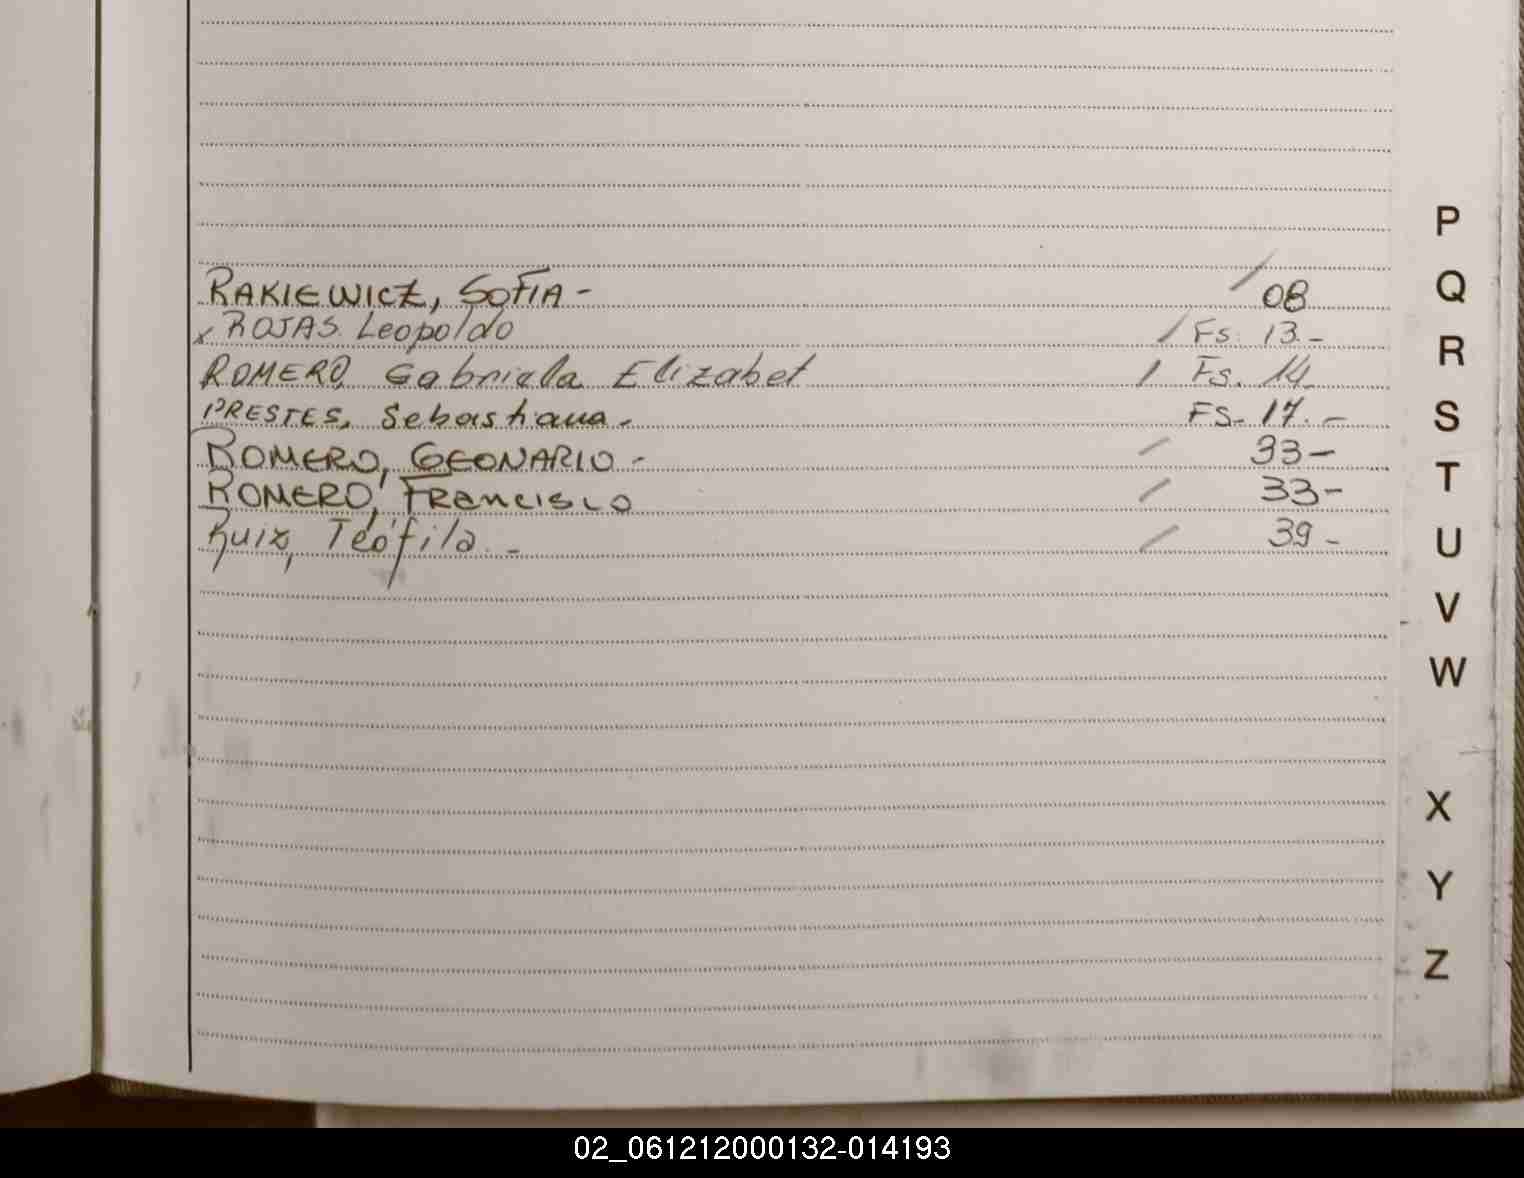 RAKIEWICZ, SOFIA - / 08
x ROJAS Leopoldo / Fs. 13.-
ROMERO, Gabriela Elizabet / Fs. 14.
PRESTES, Sebastiana. FS- 17.-
ROMERO, GEONARIO - / 33-
ROMERO, FRANCISCO / 33-
Ruiz, Teófila. - / 39-
P
Q
R
S
T
U
V
W
X
Y
Z
02_061212000132-014193